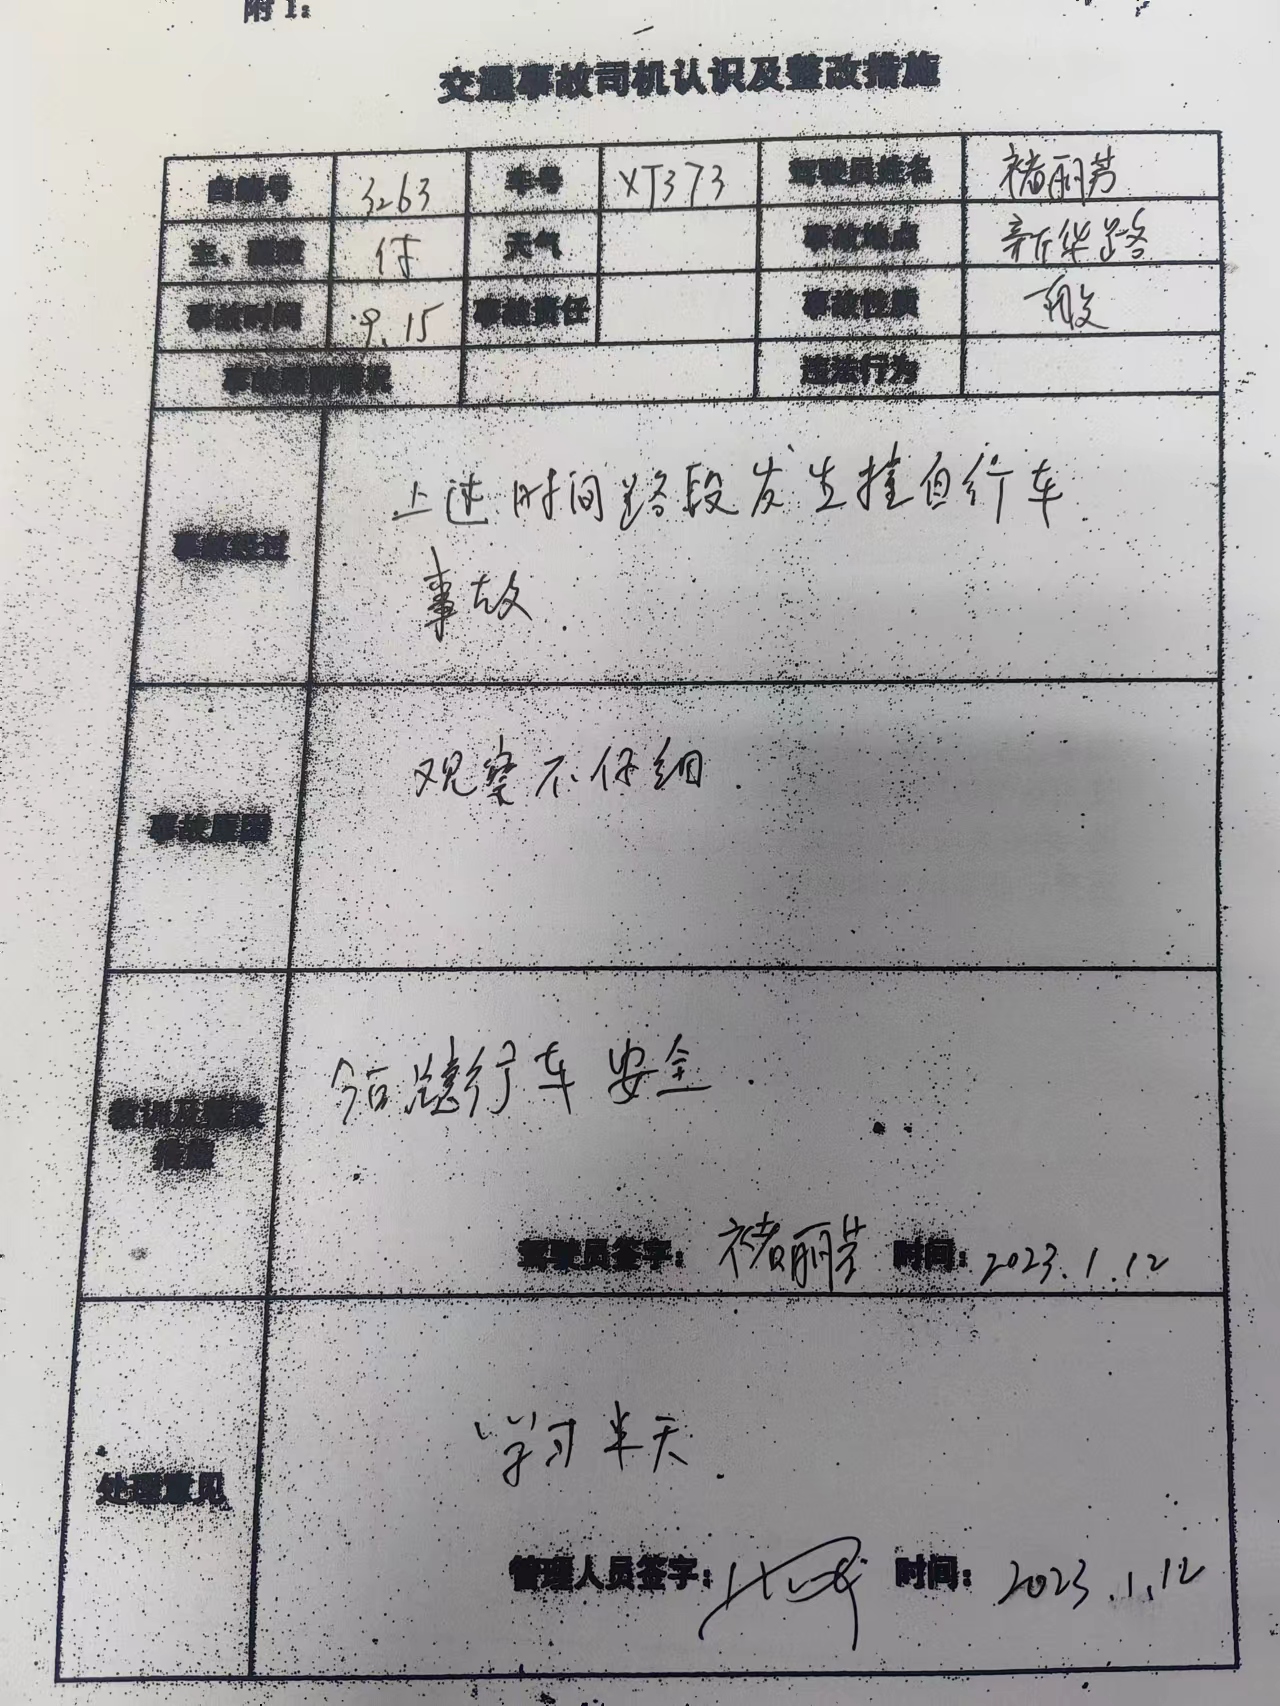 附1:
交通事故司机认识及整改措施
自编号 3263 车号 XT373 驾驶员姓名 褚丽芳
主、 天气 事故地点 新华路
事故时间 9.15 事故责任 事故性质 一般
违法行为
事故经过 上述时间路段发生挂自行车
事故.
事故原因 观察不仔细.
教训及整改
措施
今后注意行车安全.
驾驶员签字: 褚丽芳 时间: 2023.1.12
处理意见 学习半天.
管理人员签字: 时间: 2023.1.12